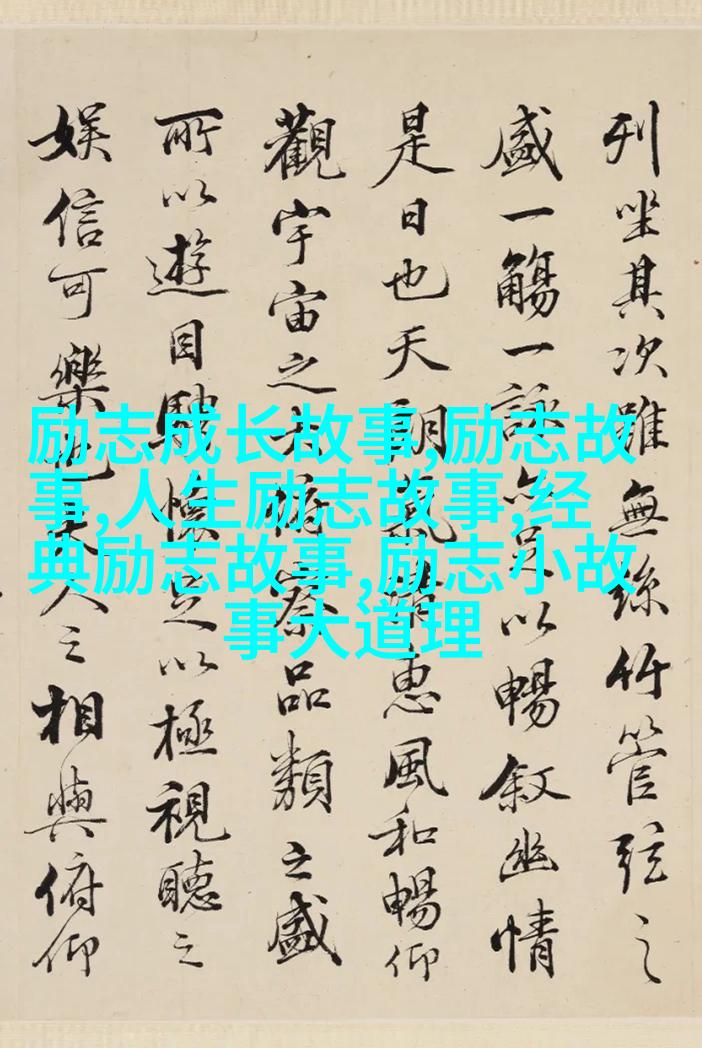 列坐其次雖無絲竹管弦之
盛一觴一詠亦足以暢叙幽情
是日也天朗氣清惠風和暢仰
觀宇宙之大俯察品類之盛
所以遊目騁懷足以極視聽之
娛信可樂也夫人之相與俯仰
励志成长故事,励志故
事,人生励志故事,经
典励志故事,励志小故
事大道理